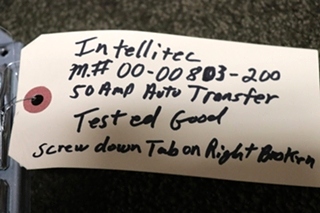 Intellitec
M.# 00-00803-200
50 Amp Auto Transfer
Tested Good
Screw down Tab on Right Broken